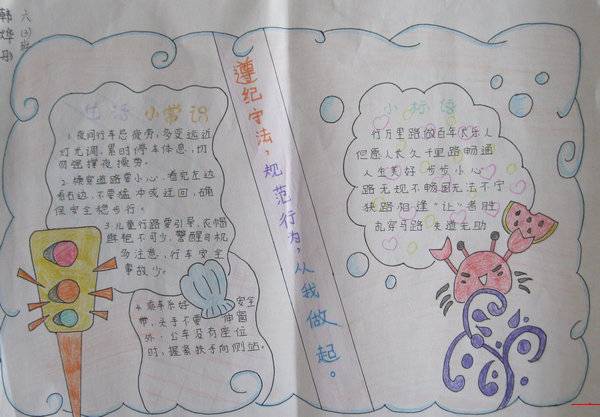 六(3)班
韩烨丹
生活小常识
1.夜间行车总疲劳,多变远近
灯光调,累时停车体息,切
勿强撑夜操劳。
2.横穿道路要小心,看完左边
看右边,不要猛冲或迂回,确
保安全想步行。
3.儿童行路要引导,衣帽
鲜艳不可少,警醒司机
多注意,行车安全
事故少。
4.乘车系好安全
带,头手不要伸窗
外,公车没有座位
时,握紧扶手向侧站。
遵纪守法,规范行为,从我做起。
小标语
行万里路做百年快乐人
但愿人长久千里路畅通
人生美好 步步小心
路无规不畅国无法不宁
狭路相逢“让”者胜
乱穿马路 失道无助